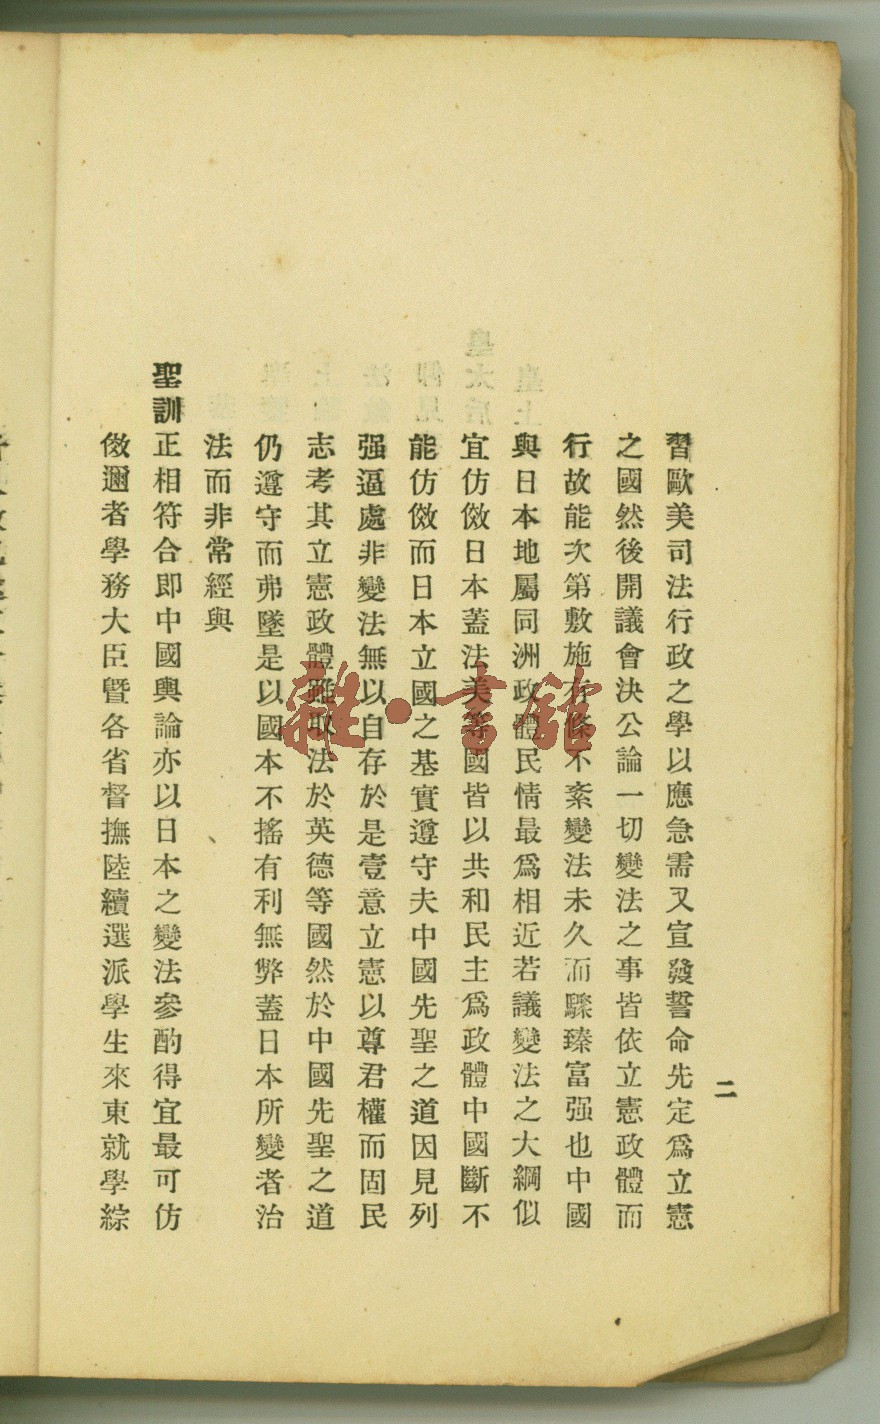 二
習歐美司法行政之學以應急需又宣發誓命先定爲立憲
之國然後開議會決公論一切變法之事皆依立憲政體而
行故能次第敷施有條不紊變法未久而驟臻富强也中國
與日本地屬同洲政體民情最爲相近若議變法之大綱似
宜仿傚日本蓋法美等國皆以共和民主爲政體中國斷不
能仿傚而日本立國之基實遵守夫中國先聖之道因見列
强逼處非變法無以自存於是壹意立憲以尊君權而固民
志考其立憲政體雖取法於英德等國然於中國先聖之道
仍遵守而弗墜是以國本不搖有利無弊蓋日本所變者治
法而非常經與
聖訓正相符合即中國輿論亦以日本之變法參酌得宜最可仿
傚邇者學務大臣暨各省督撫陸續選派學生來東就學綜
雜·書館